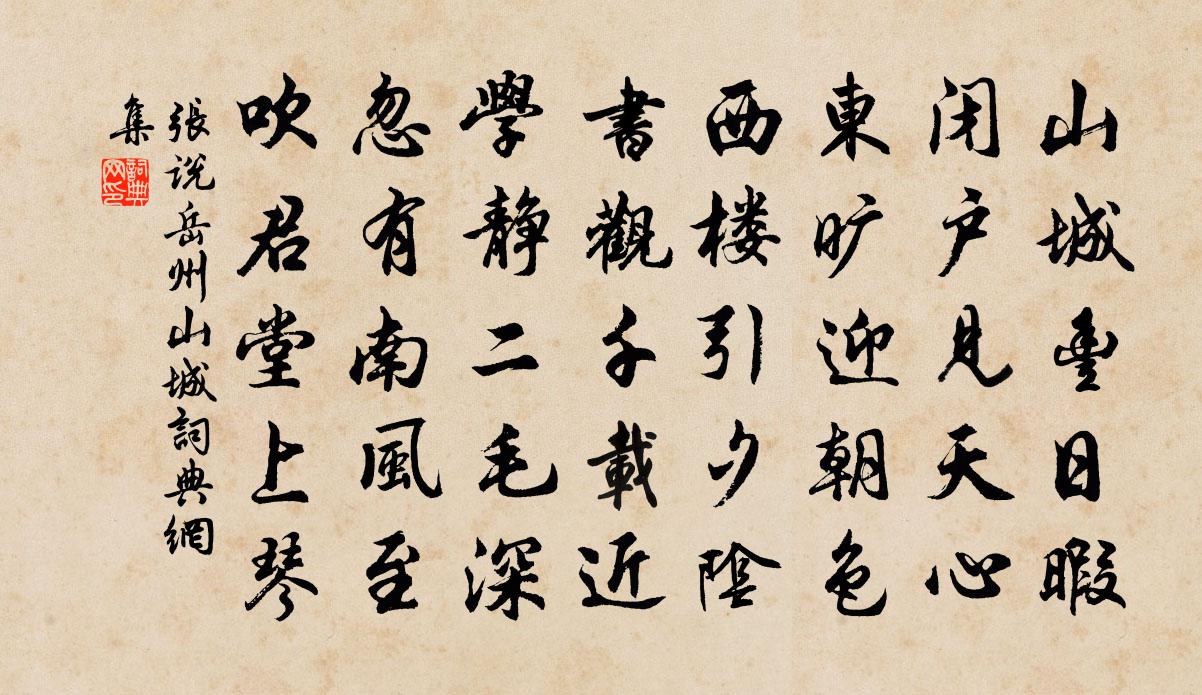 山城豐日暇
閉户見天心
東旷迎朝色
西楼引夕陰
書觀千載近
學靜二毛深
忽有南風至
吹君堂上琴
張说岳州山城詞典網
集
詞典
网印